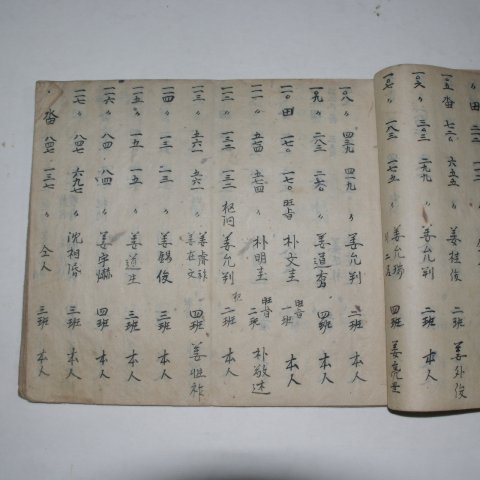 一〇五 畓 七二〇 六五五 〃 姜桂俊 二班 姜外俊
一〇六 〃 三〇三 二九九 〃 姜允判 二班 本人
一〇七 〃 一八三 一七五 〃 姜允瑞 四班
一〇八 〃 四三九 四一九 〃 姜允判 二班 本人
一〇九 〃 二八三 二六〇 〃 姜道 四班 本人
一一〇 田 一七〇 一七〇 朴文圭 一班 本人
一一一 〃 五七四 五七四 〃 朴明圭 二班 朴敬述
一一二 〃 一三二 一三二 姜允判 二班 本人
一一三 〃 五六一 五六一 〃 姜在文 四班 姜
一一四 〃 一三 二三 〃 姜錫俊 三班 本人
一一五 〃 一五 一五 〃 姜道生 三班 本人
一一六 〃 八四 八四 〃 姜宇 四班 本人
一一七 〃 八四七 六九七 〃 沈相 三班 本人
〃 畓 八四七 一三七 〃 仝人 三班 本人